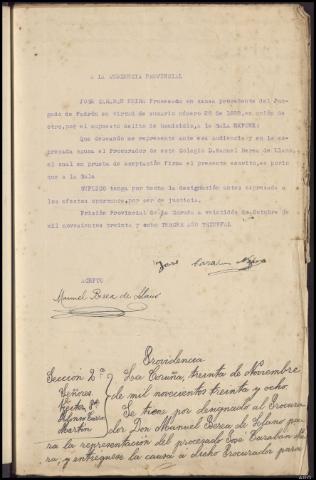 A LA AUDIENCIA PROVINCIAL
JOSE CARABAN NEIRA Procesado en causa procedente del Juz-
gado de Padrón en virtud de sumario número 26 de 1938, en unión de
otro, por el supuesto delito de homicidio, a la SALA EXPONE:
Que deseando se represente ante esa Audiencia y en la ex-
presada causa el Procurador de este Colegio D. Manuel Berea de Llano,
el cual en prueba de aceptación firma el presente escrito, es porlo
que a la Sala
SUPLICO tenga por hecha la designación antes expresada a
los efectos oportunos, por ser de justicia.
Prisión Provincial de la Coruña a veintidós de Octubre de
mil novecientos treinta y ocho TERCER AÑO TRIUNFAL
José Caraban Neira
ACEPTO
Manuel Berea de Llano
Providencia
Sección 2ª
La Coruña, treinta de Noviembre
Señores
de mil novecientos treinta y ocho
Martín
Se tiene por designado al Procura-
dor Don Manuel Berea de Llano pa-
ra la representación del procesado José Caraban Nei-
ra, y entréguese la causa a dicho Procurador para